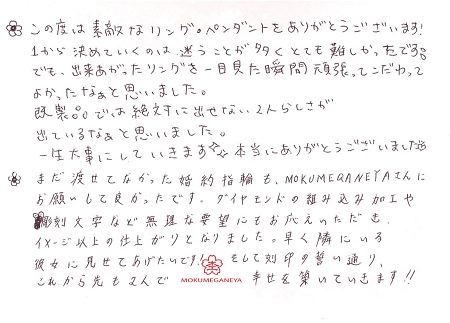 この度は素敵なリング。ペンダントをありがとうございます!
1から決めていくのは迷うことが多くとても難しかったです。
でも、出来あがったリングを一目見た瞬間頑張ってこだわって
よかったなぁと思いました。
既製品では絶対に出せない2人らしさが
出ているなぁと思いました。
一生大事にしていきます☆ 本当にありがとうございました
まだ渡せてなかった婚約指輪も、MOKUMEGANEYAさんに
お願いして良かったです。ダイヤモンドの組み込み加工や
彫刻文字など無理な要望にもお応えいただき、
イメージ以上の仕上がりとなりました。早く隣にいる
彼女に見せてあげたいです! そして刻印の誓い通り、
これから先も2人で 幸せを築いていきます!!
MOKUMEGANEYA